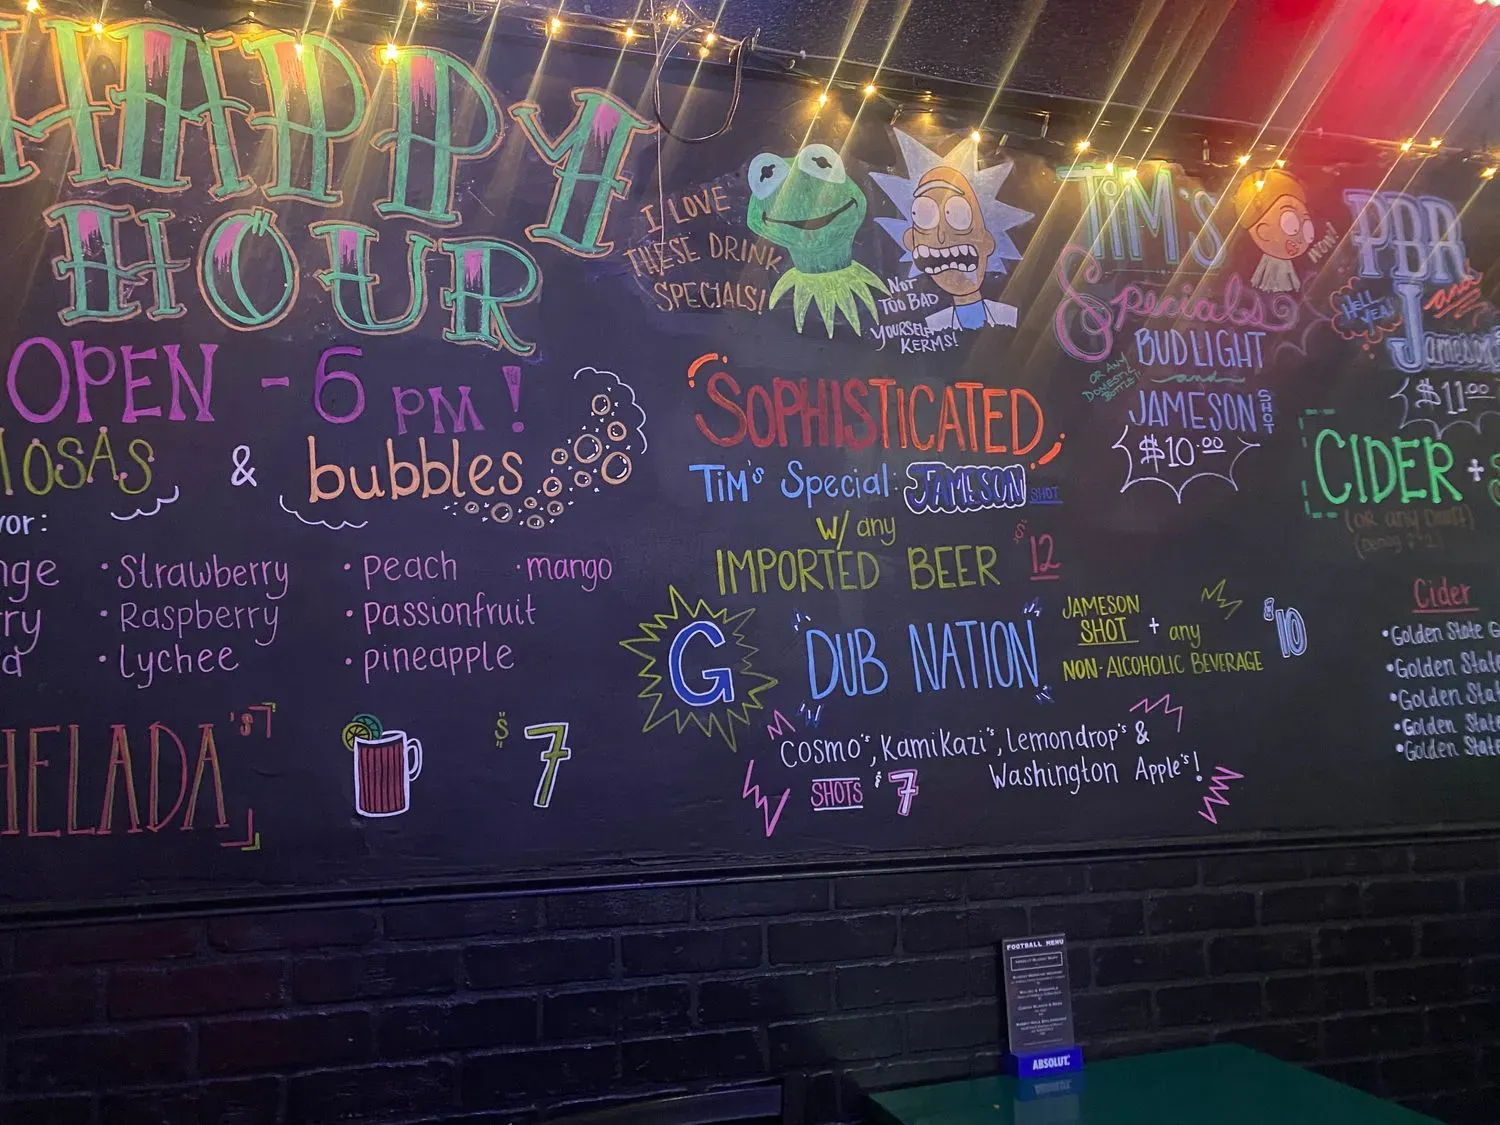 HAPPY
HOUR
OPEN - 6 PM!
MOSAS & bubbles
vor:
nge
rry
d
· Strawberry
· Raspberry
· lychee
· peach
· passionfruit
· pineapple
· mango
HELADA 's
$7
I LOVE
THESE DRINK
SPECIALS!
NOT
TOO BAD
YOURSELF
KERMS!
SOPHISTICATED
TiM's Special: JAMESON SHOT
W/ any
IMPORTED BEER $12
G DUB NATION
JAMESON
SHOT + any
NON-ALCOHOLIC BEVERAGE
$10
COSMO's, KamiKazi's, Lemondrop's &
Washington Apple's!
SHOTS $7
TiM's
Specials
BUD LIGHT
OR ANY
DOMESTIC
BOTTLE!
and
JAMESON SHOT
$10.00
WOW!
PBR
HELL
YEA!
and
Jameson
$11.00
CIDER +
(OR any Draft)
Cider
• Golden State G
• Golden State
• Golden Sta
• Golden State
• Golden State
FOOTBALL MENU
ABSOLUT.